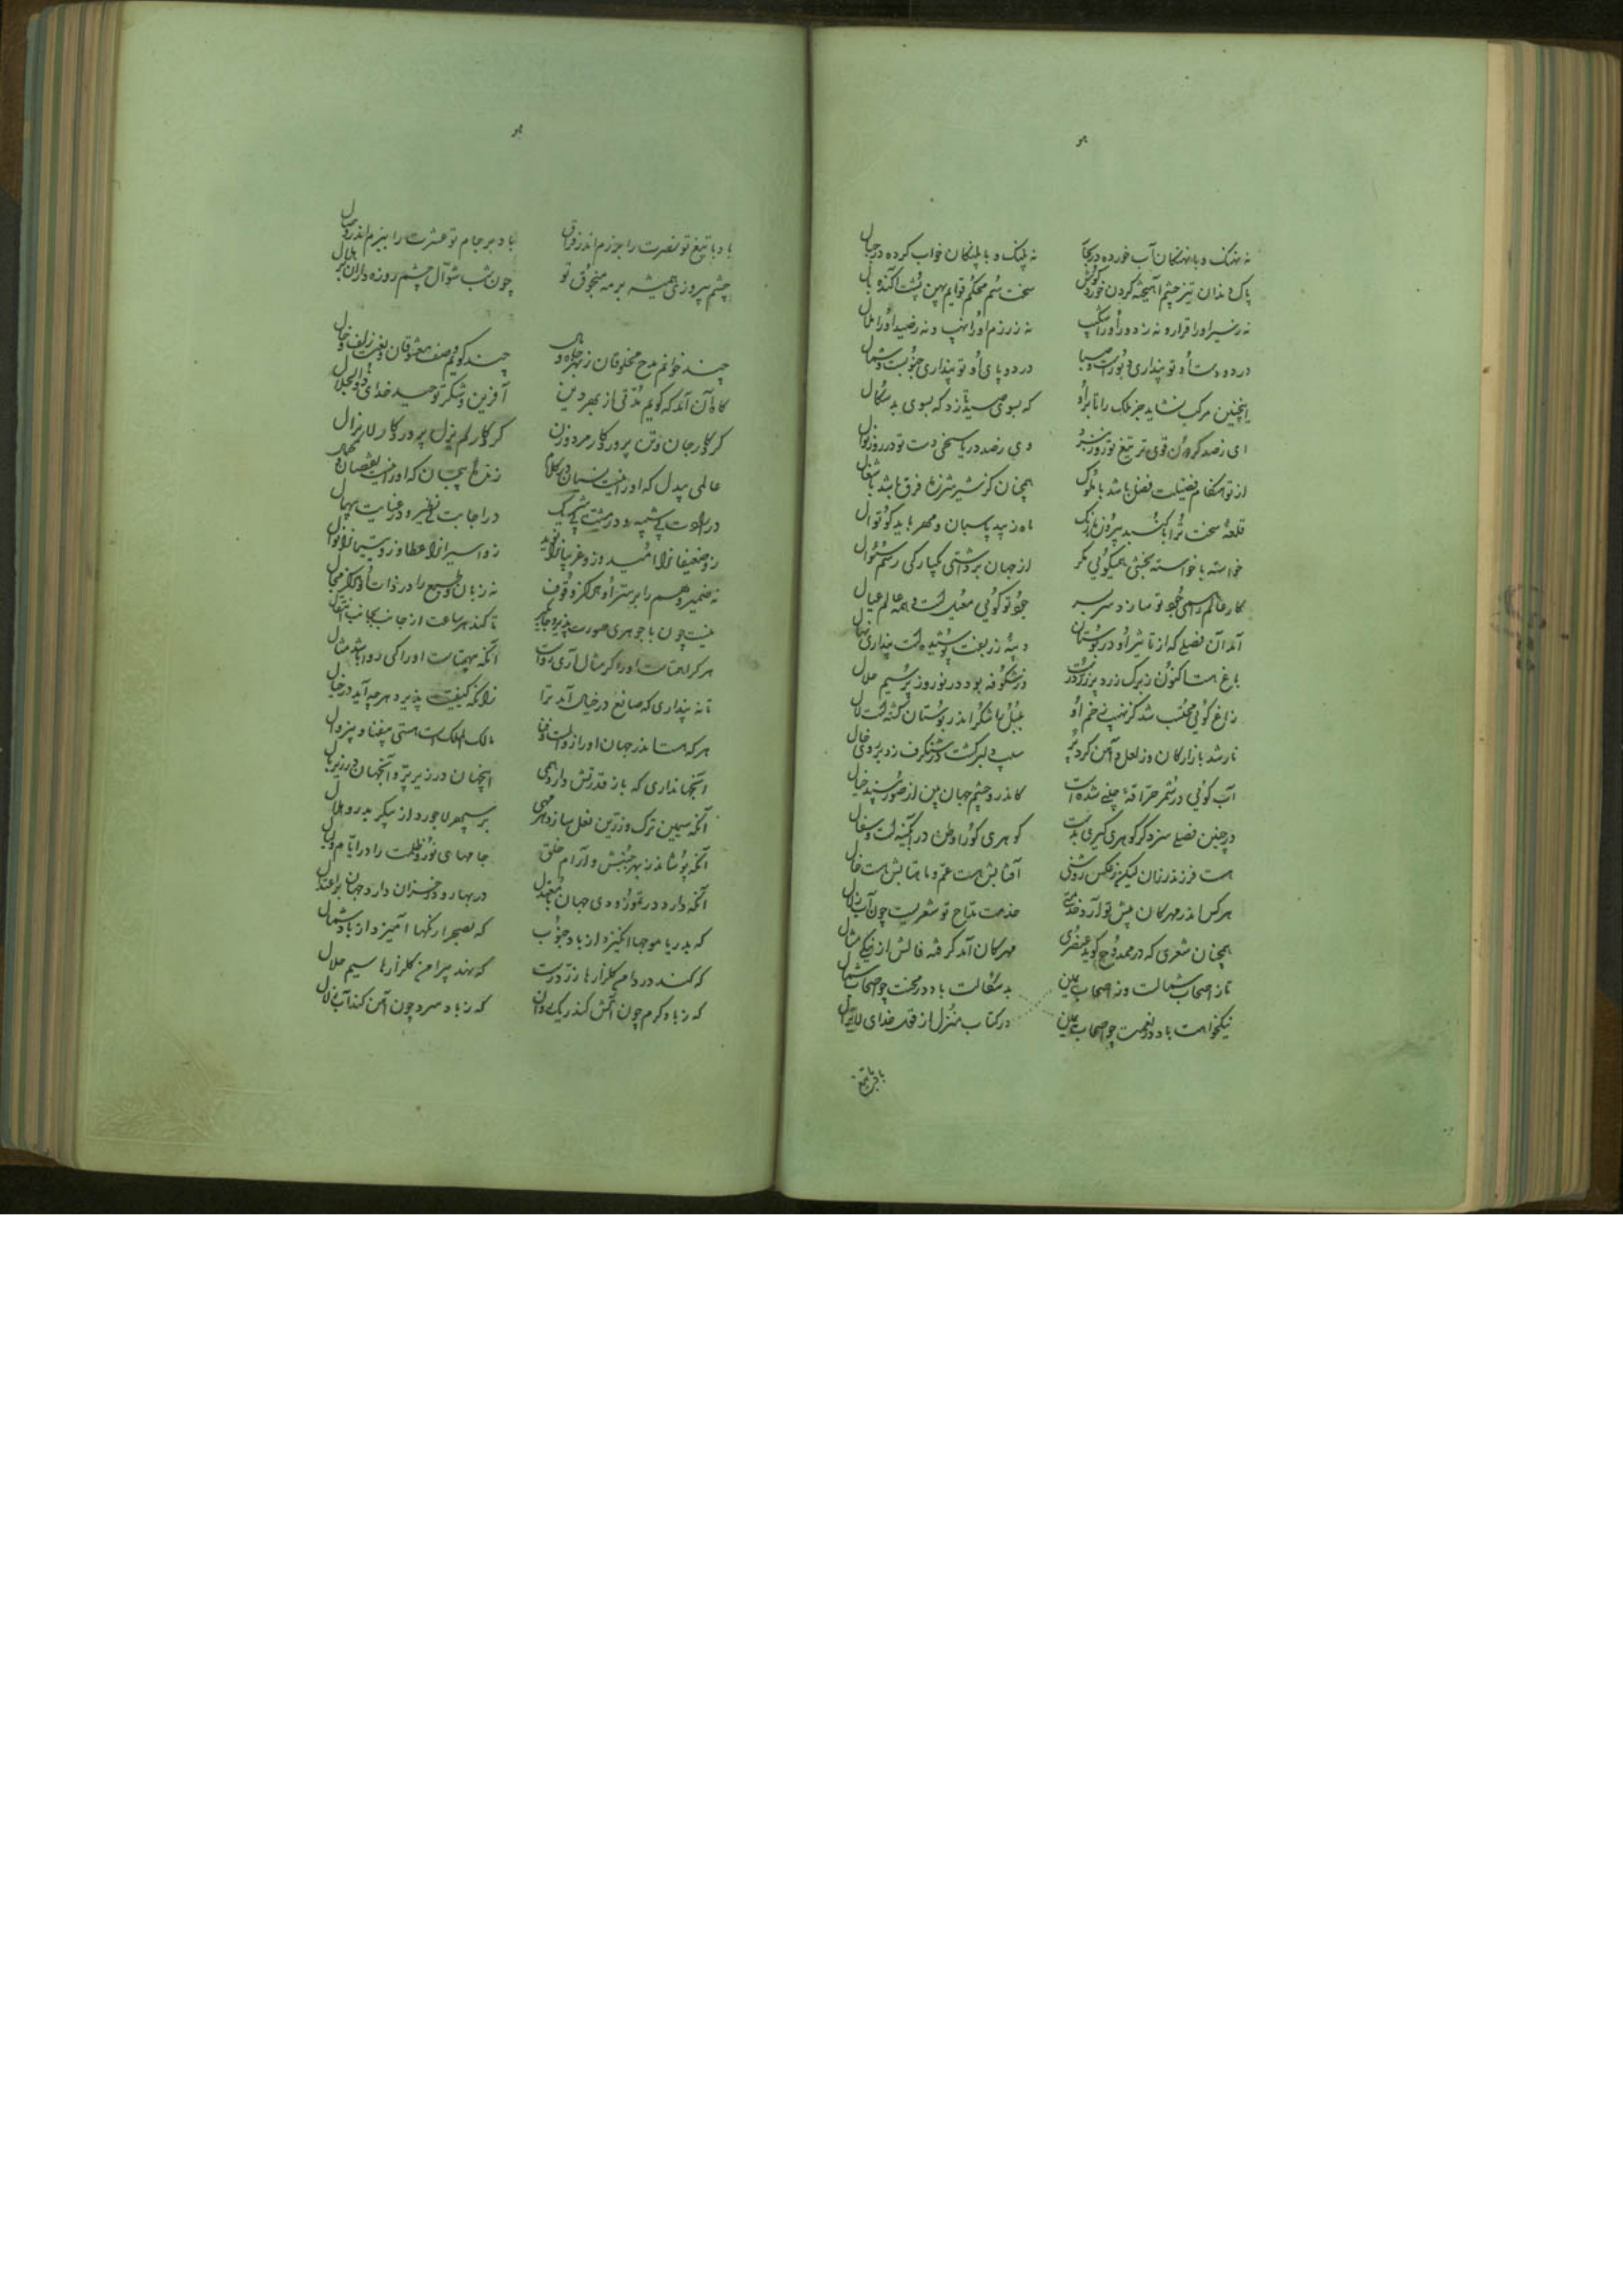 هو
نه نهنگ و با نهنگان آب خورده در بحار    نه پلنگ و با پلنگان خواب کرده در جبال
پاک دندان تیز چشم آهیخته گردن خورد گوش    سخت سم محکم قوایم پهن پشت آکنده یال
نه زشیر او را قرار و نه زدد او را شکیب    نه زرزم او را نهیب و نه زصید او را ملال
در دو دست او تو پنداری دبورست و صبا    در دو پای او تو پنداری جنوبست و شمال
اینچنین مرکب نشاید جز ملک را تا براو    که بسوی صید تازد که بسوی بدسگال
ای زصد گردون قوی تر تیغ تو روز نبرد    وی زصد دریا سخی دست تو در روز نوال
از تو هنگام فضیلت فضل باشد با ملوک    همچنان کز شیر شرزه فرق باشد با شغال
قلعهٔ سخت ترا باید پیرون    ماه زیبد پاسبان و مهر باید کوتوال
خواسته با خواسته بخشی همیگوئی مگر    از جهان برداشتی یکبارگی رسم سئوال
کار عالم را همی جود تو سازد سر بسر    جود تو گوئی معیل است و همه عالم عیال
آمد آن فصلی که از تاثیر او در بوستان    دیبه زربفت پوشیده است پنداری نهال
باغ هست اکنون ز برگ زرد پر زر درست    وز شکوفه بود در نوروز پر سیم حلال
زاغ گوئی محتسب شد کز نهیب زخم او    بلبل با شکر اندر بوستان گشته است لال
نار شد بازارگان وز لعل دامن کرد پر    سیب دلبر گشت و شنگرف زد بر روی خال
آب گوئی در شمر حراقهٔ چینی شده است    کاندرو چشم جهان بین از صور بیند خیال
در چنین فصلی سزد گر گوهری گیری بدست    گوهری کورا وطن در آبگینه است و سفال
هست فرزند رزان لیکن ز عکس روشنی    آفتابش هست عم و ماهتابش هست خال
هر کس اندر مهرکان پیش تو آرد خدمتی    خدمت مداح تو شعریست چون آب زلال
همچنان شعری که در ممدوح گوید عنصری    مهرکان آمد گرفته فالش از نیکی مثال
تا ز اصحاب شمالست و ز اصحاب یمین    در کتاب منزل از قول خدای لایزال
نیکخواهت باد در نعمت چو اصحاب یمین    بدسگالت باد در محنت چو اصحاب شمال
باد با تیغ
هو
باد با تیغ تو نصرت را برزم اندر قران    باد بر جام تو عشرت را ببزم اندر وصال
چشم پیروزی همیشه بر مه منجوق تو    چون شب شوال چشم روزه داران بر هلال
چند خوانم مدح مخلوقان ز بهر جاه و مال    چند گویم وصف معشوقان و نعت زلف و خال
گاه آن آمد که گویم مدتی از بهر دین    آفرین و شکر و توحید خدای ذوالجلال
کردگار جان و تن پروردگار مرد و زن    کردگار لم یزل پروردگار لایزال
عالمی بیدل که او را نیست نسیان در کلام    زندهٔ بیجان که او را نیست نقصان در کمال
در الوهیت بی شبیه و در مشیت بی شریک    در اجابت بی نظیر و در عنایت بی همال
زو ضعیفانرا امید و زو غریبانرا نوید    زو اسیرانرا عطا و زو یتیمانرا نوال
نه ضمیر و وهم را بر سر او هرگز وقوف    نه زبان و طبع را در ذات او هرگز مجال
نیست چون با جوهری صورت پذیر و جایگیر    تا کند هر ساعت از جانب بجانب انتقال
هر کرا همتاست او را گر مثال آری رواست    آنکه بیهمتاست او را کی روا باشد مثال
تا نه پنداری که صانع در خیال آید ترا    زانکه کیفیت پذیرد هر چه آید در خیال
هر که هست اندر جهان او را زوالست و فنا    مالک الملک است هستی بیفنا و بیزوال
آنجهانداری که باز قدرتش دارد همی    اینجهان در زیر پرّ و آنجهان در زیر بال
آنکه سیمین ترک و زرین نعل سازد هر مهی    بر سپهر لاجورد از پیکر بدر و هلال
آنکه پوشاند ز بهر جنبش و آرام خلق    جامهای نور و ظلمت را در ایام و لیال
آنکه دارد در تموز و دی جهان نامعتدل    در بهار و در خزان دارد جهان بر اعتدال
که بدریا موجها انگیزد از باد جنوب    که بصحرا رنگها آمیزد از باد شمال
که کند در دامن گلزارها زر درست    که نهد پیرامن گلزارها سیم حلال
که ز باد گرم چون آتش کند ریگ روان    که ز باد سرد چون آهن کند آب زلال